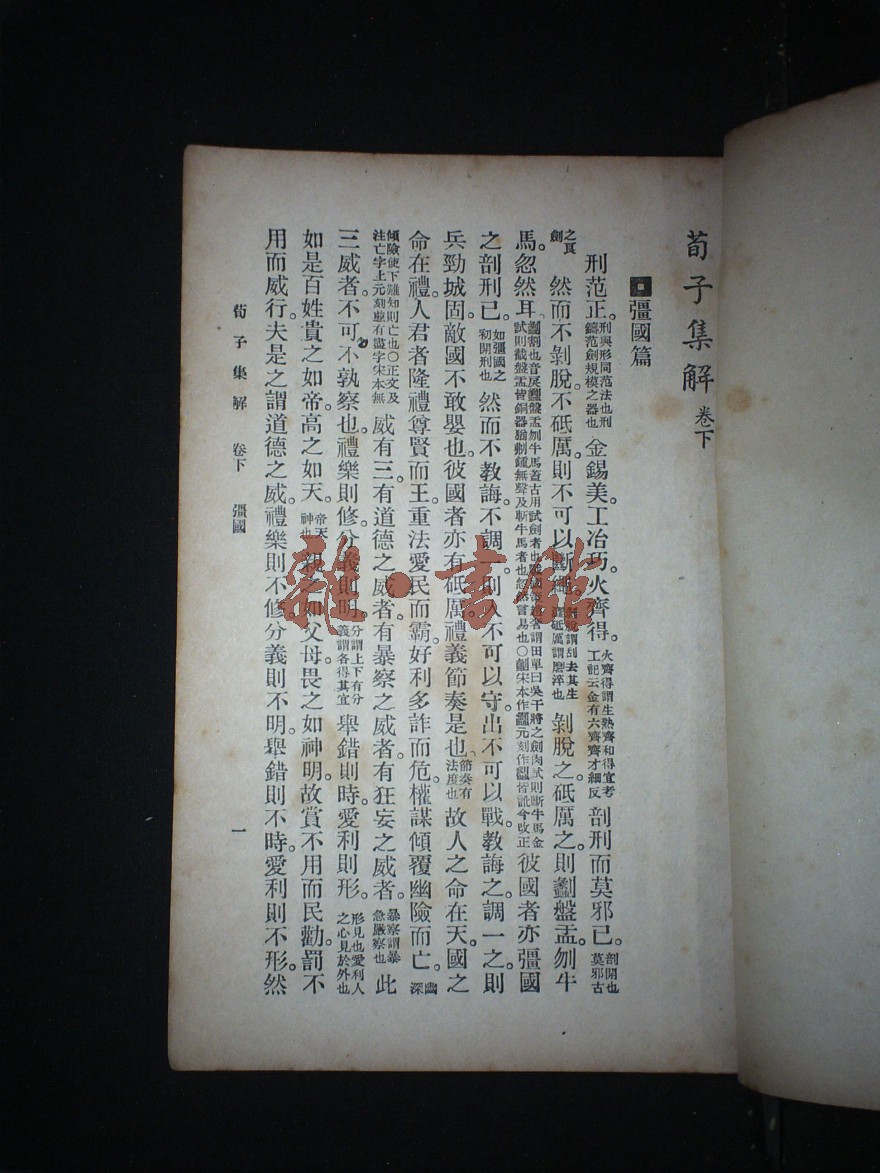 荀子集解 卷下
彊國篇
刑范正。刑與形同范法也刑范鑄劍規模之器也金錫美。工冶巧。火齊得。火齊得謂生熟齊和得宜考工記云金有六齊齊才細反剖刑而莫邪已。剖開也莫邪古
之良劍然而不剝脫。不砥厲。則不可以斷繩。剝脫謂刮去其生澀砥厲謂磨淬也剝脫之。砥厲之。則劙盤盂。刎牛
馬。忽然耳。劙割也音戾劙盤盂刎牛馬蓋古用試劍者也戰國策趙奢謂田單曰吳干將之劍肉試則斷牛馬金試則截盤盂皆銅器猶刺鍾無聲及斬牛馬者也忽然言易也〇劙宋本作元刻作皆訛今改正彼國者亦彊國
之剖刑已。如彊國之初開刑也然而不教誨。不調一。則入不可以守。出不可以戰。教誨之。調一之。則
兵勁城固。敵國不敢嬰也。彼國者亦有砥厲。禮義節奏是也。節奏有法度也故人之命在天。國之
命在禮。人君者隆禮尊賢而王。重法愛民而霸。好利多詐而危。權謀傾覆幽險而亡。幽深
傾險使下難知則亡也〇正文及注亡字上元刻並有盡字宋本無威有三。有道德之威者。有暴察之威者。有狂妄之威者。暴察謂暴急嚴察也此
三威者。不可不孰察也。禮樂則修。分義則明。分謂上下有分義謂各得其宜舉錯則時。愛利則形。形見也愛利人之心見於外也
如是百姓貴之如帝。高之如天。帝天神也親之如父母。畏之如神明。故賞不用而民勸。罰不
用而威行。夫是之謂道德之威。禮樂則不修。分義則不明。舉錯則不時。愛利則不形。然
荀子集解 卷下 彊國 一
雜·書館